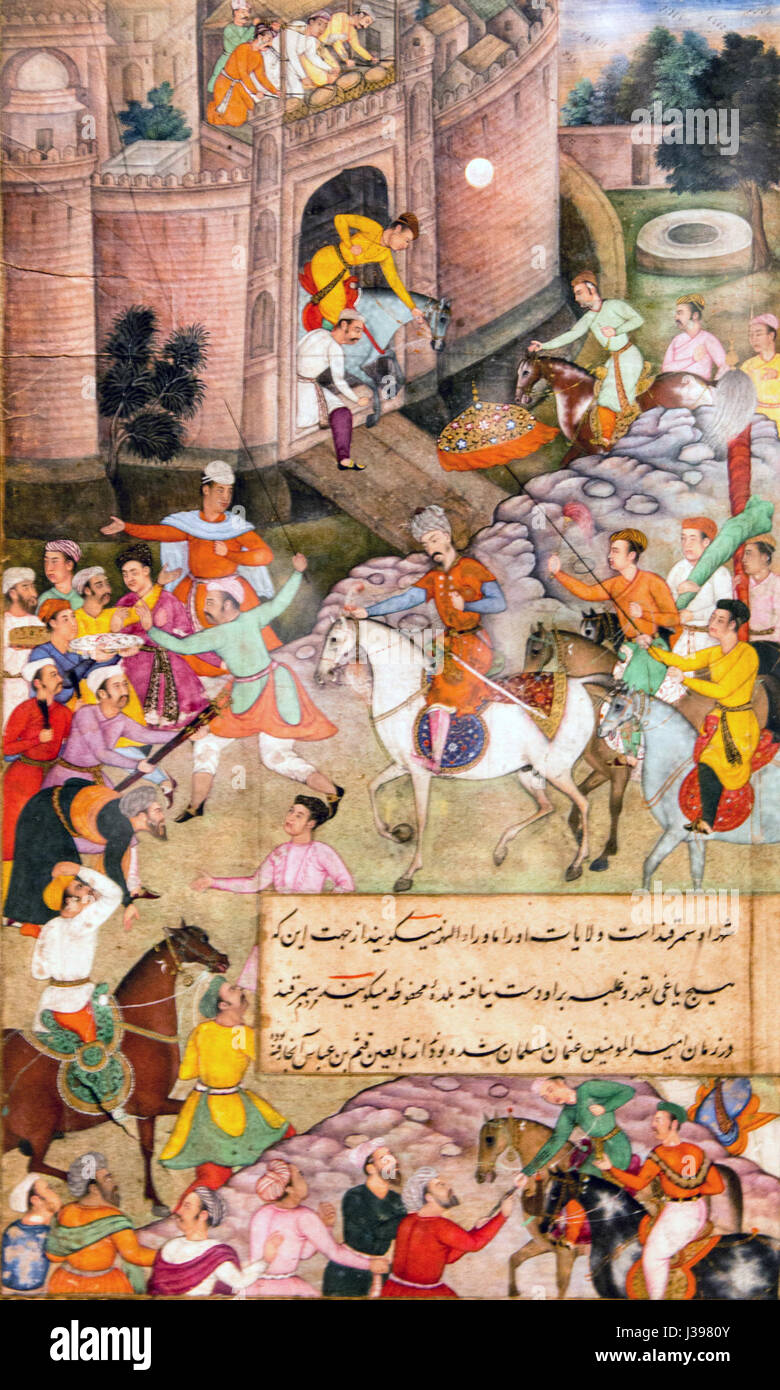 شهر او سمرقند است و ولایات او را ماوراء النهر میگویند از جهت این که
هیچ یاغی بقهر و غلبه بر او دست نیافته بلدهٔ محفوظه میگویند سمرقند
در زمان امیر المومنین عثمان مسلمان شده بود از تابعین قثم بن عباس آنجا رفته بود
alamy
Image ID: J3980Y
www.alamy.com